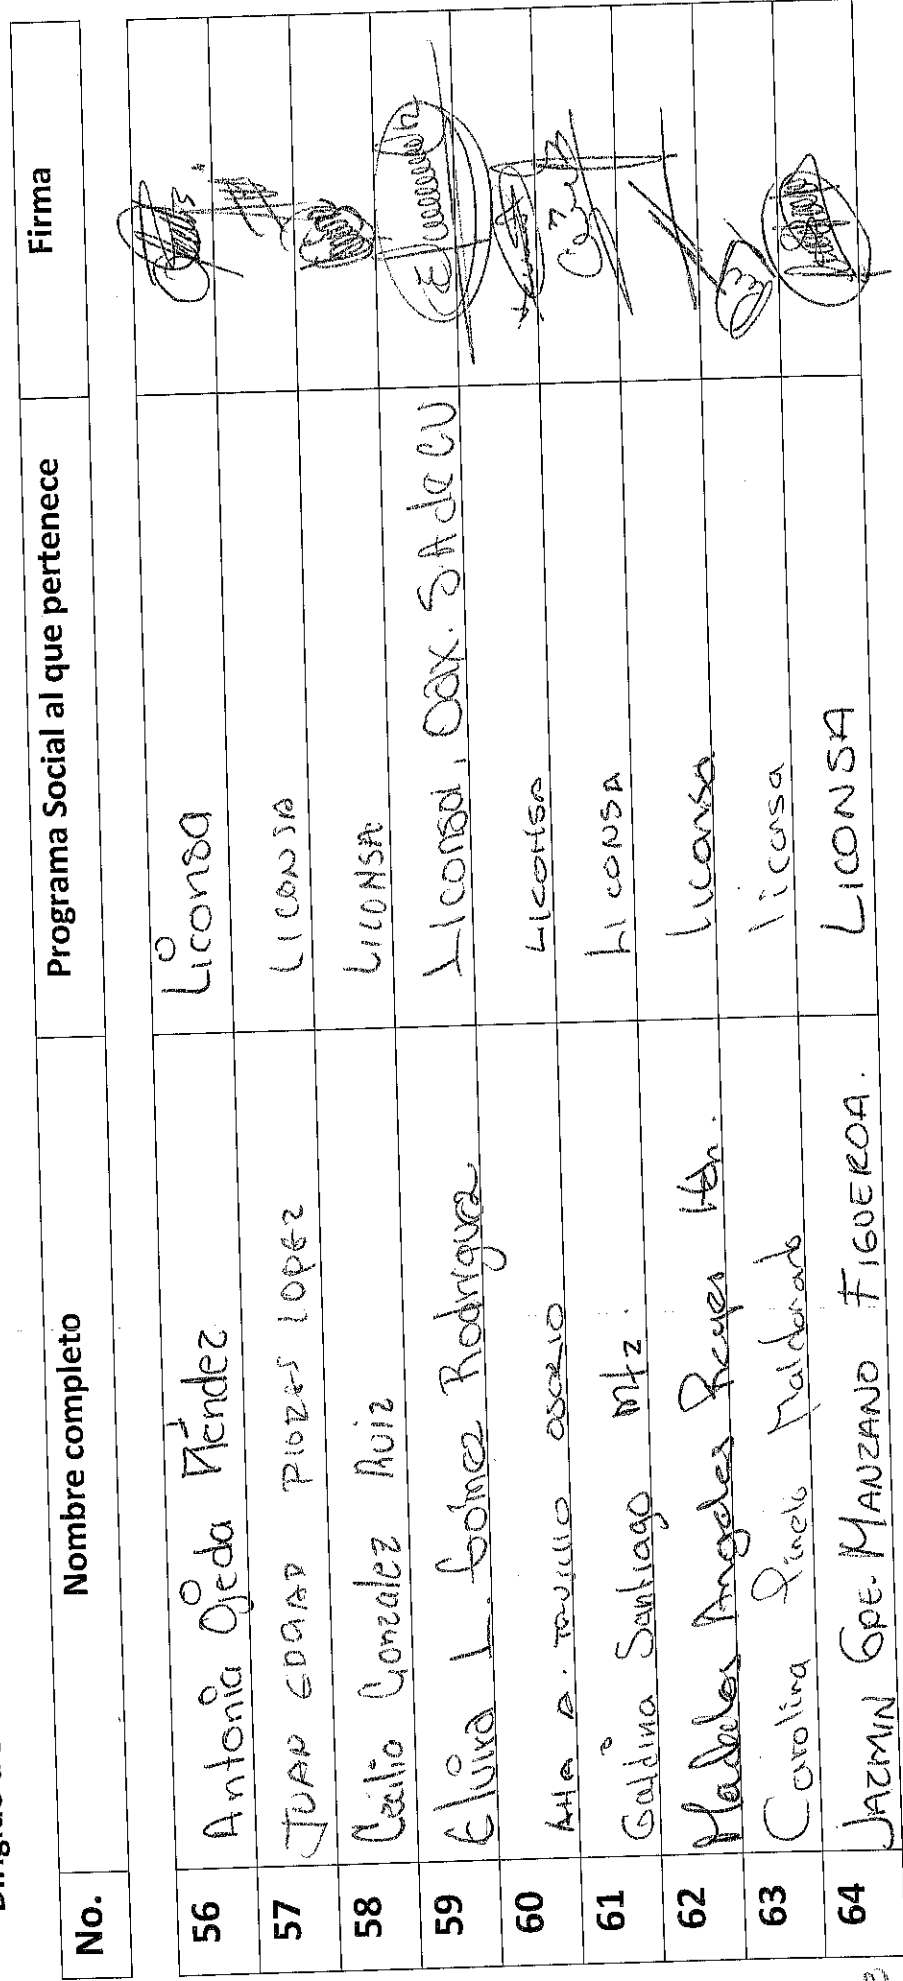 No. Nombre completo Programa Social al que pertenece Firma
56 Antonia Ojeda Méndez Liconsa
57 JUAN EDGAR LOPEZ LICONSA
58 Cecilio Gonzalez Ruiz LICONSA
59 Elvira L. Gómez Rodriguez Liconsa, Oax. S.A de CV
60 ANA A. TRUJILLO OSORIO LICONSA
61 Galdina Santiago Mtz. LICONSA
62 Ma de los Angeles Reyes Hdn. Liconsa
63 Carolina Pinelo Maldonado liconsa
64 JAZMIN GPE. MANZANO FIGUEROA. LICONSA